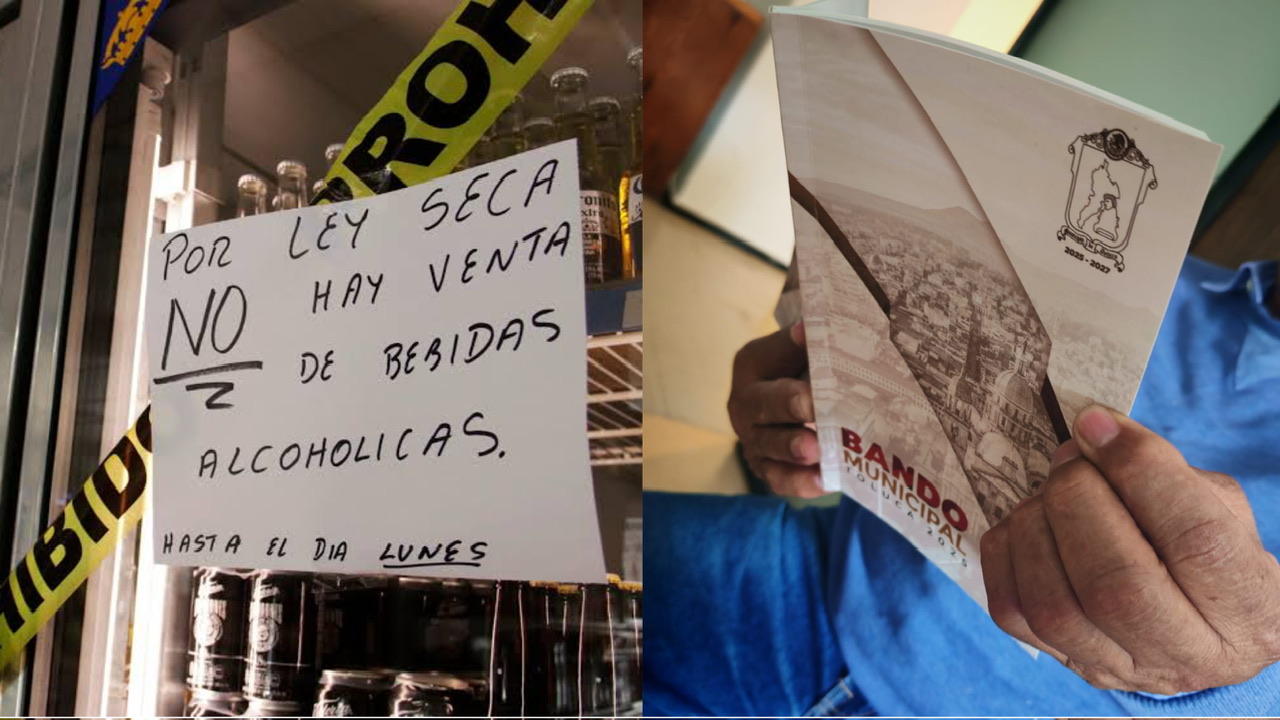 POR LEY SECA
NO HAY VENTA
DE BEBIDAS
ALCOHOLICAS.
HASTA EL DIA LUNES
2025 - 2027
BANDO
MUNICIPAL
TOLUCA 2025